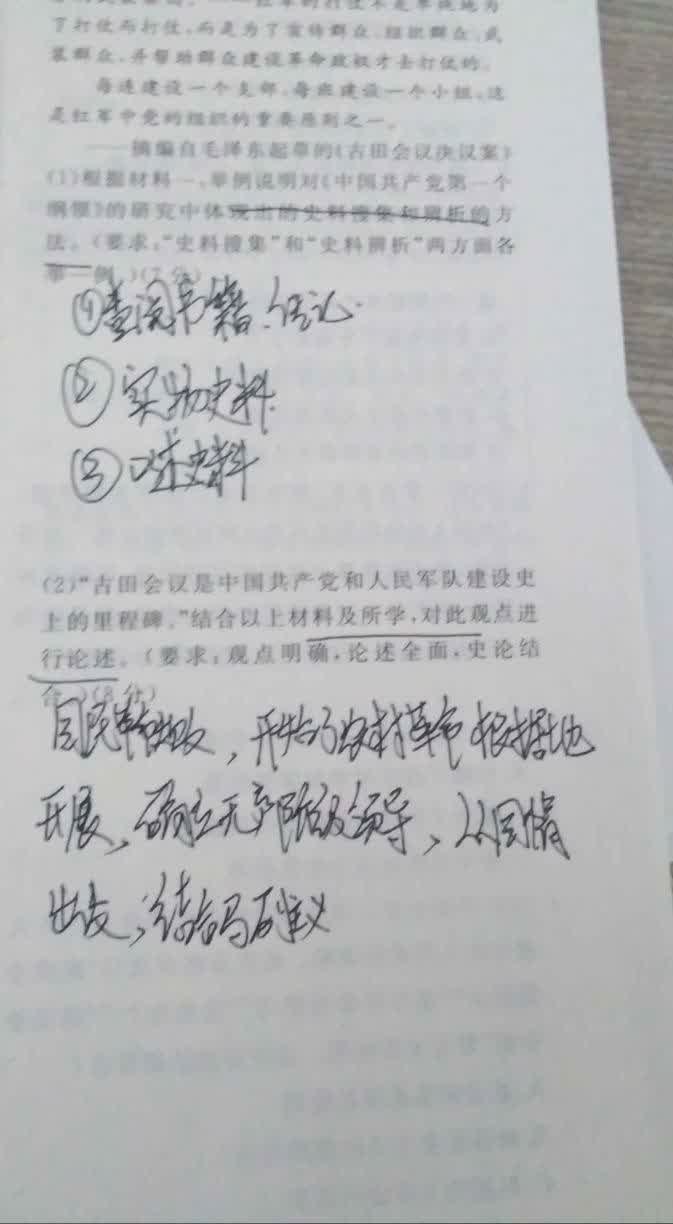 了打仗而打仗,而是为了宣传群众、组织群众、武
装群众,并帮助群众建设革命政权才去打仗的。
每连建设一个支部,每班建设一个小组,这
是红军中党的组织的重要原则之一。
——摘编自毛泽东起草的《古田会议决议案》
(1)根据材料一,举例说明对《中国共产党第一个
纲领》的研究中体现出的史料搜集和辨析的方
法。(要求:“史料搜集”和“史料辨析”两方面各
举一例。)(7分)
①查阅书籍、
②实物史料
③口述史料
(2)“古田会议是中国共产党和人民军队建设史
上的里程碑。”结合以上材料及所学,对此观点进
行论述。(要求:观点明确,论述全面,史论结
合。)(8分)
国民革命失败,开始了农村革命根据地
开展,确立无产阶级领导,从国情
出发,结合马列主义